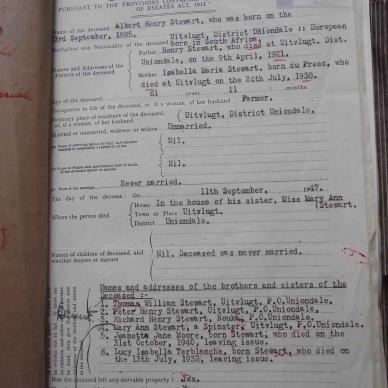 PURSUANT TO THE PROVISIONS CONTAINED
OF ESTATES ACT, 1913
Name of the deceased Albert Henry Stewart, who was born on the
3rd September, 1885. Uitvlugt, District Uniondale :: European
Birthplace and Nationality of the deceased born in South Africa.
Names and Addresses of the Parents of the deceased
Father Henry Stewart, who died at Uitvlugt, Dist.
Uniondale, on the 9th April, 1921.
Mother Isabella Maria Stewart, born du Preez, who
died at Uitvlugt on the 24th July, 1938.
Age of the deceased 61 years 11 months
Occupation in Life of the deceased, or, if a woman, of her husband Farmer.
Ordinary place of residence of the deceased, or, if a woman, of her husband Uitvlugt, District Uniondale.
Married or unmarried, widower or widow Unmarried.
Nil.
Nil.
Never married.
The day of the decease: On 11th September, 1947.
Where the person died
House In the house of his sister, Miss Mary Ann
(Stewart.
Town or Place Uitvlugt.
District Uniondale.
Names of children of deceased, and whether majors or minors
Nil. Deceased was never married.
Names and addresses of the brothers and sisters of the
Deceased :-
1. Thomas Willian Stewart, Uitvlugt, P.O.Uniondale.
2. Peter Henry Stewart, Uitvlugt, P.O.Uniondale.
3. Richard Henry Stewart, P.O.Uniondale.
4. Mary Ann Stewart, a Spinster, Uitvlugt, P.O. Uniondale.
5. Jeanetta Jane Moore, born Stewart, who died on the
31st October, 1940, leaving issue.
6. Lucy Isabella Terblanche, born Stewart, who died on
the 13th July, 1932, leaving issue.
Has the deceased left any movable property? Yes.